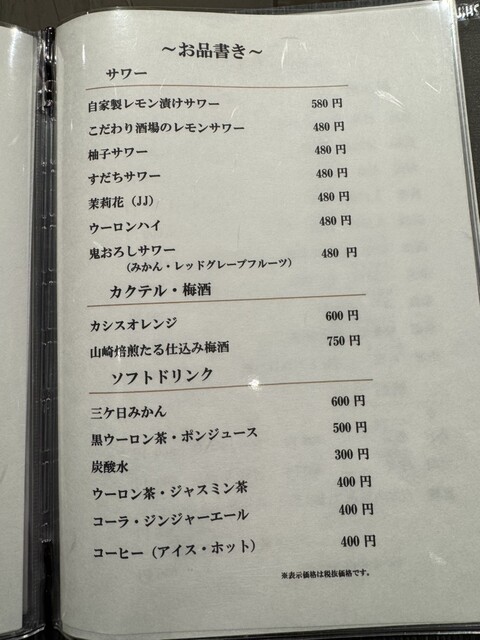 ～お品書き～
サワー
自家製レモン漬けサワー 580 円
こだわり酒場のレモンサワー 480 円
柚子サワー 480 円
すだちサワー 480 円
茉莉花（JJ） 480 円
ウーロンハイ 480 円
鬼おろしサワー 480 円
（みかん・レッドグレープフルーツ）
カクテル・梅酒
カシスオレンジ 600 円
山崎焙煎たる仕込み梅酒 750 円
ソフトドリンク
三ケ日みかん 600 円
黒ウーロン茶・ポンジュース 500 円
炭酸水 300 円
ウーロン茶・ジャスミン茶 400 円
コーラ・ジンジャーエール 400 円
コーヒー（アイス・ホット） 400 円
※表示価格は税抜価格です。